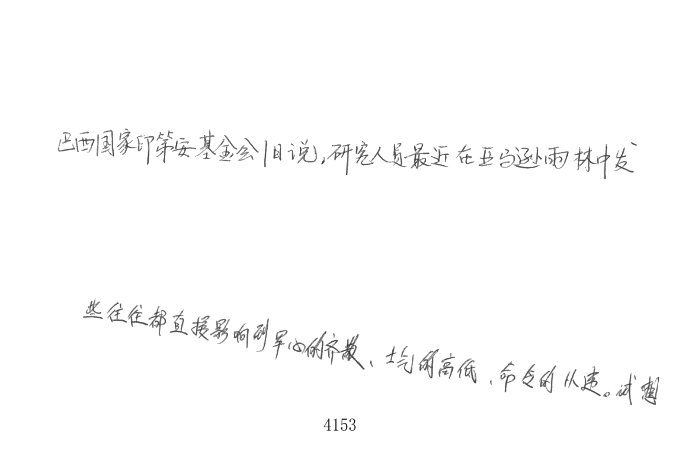 巴西国家印第安基金会1日说,研究人员最近在亚马逊雨林中发
些往往都直接影响到军心的齐散、士气的高低、命令的从违。试想
4153